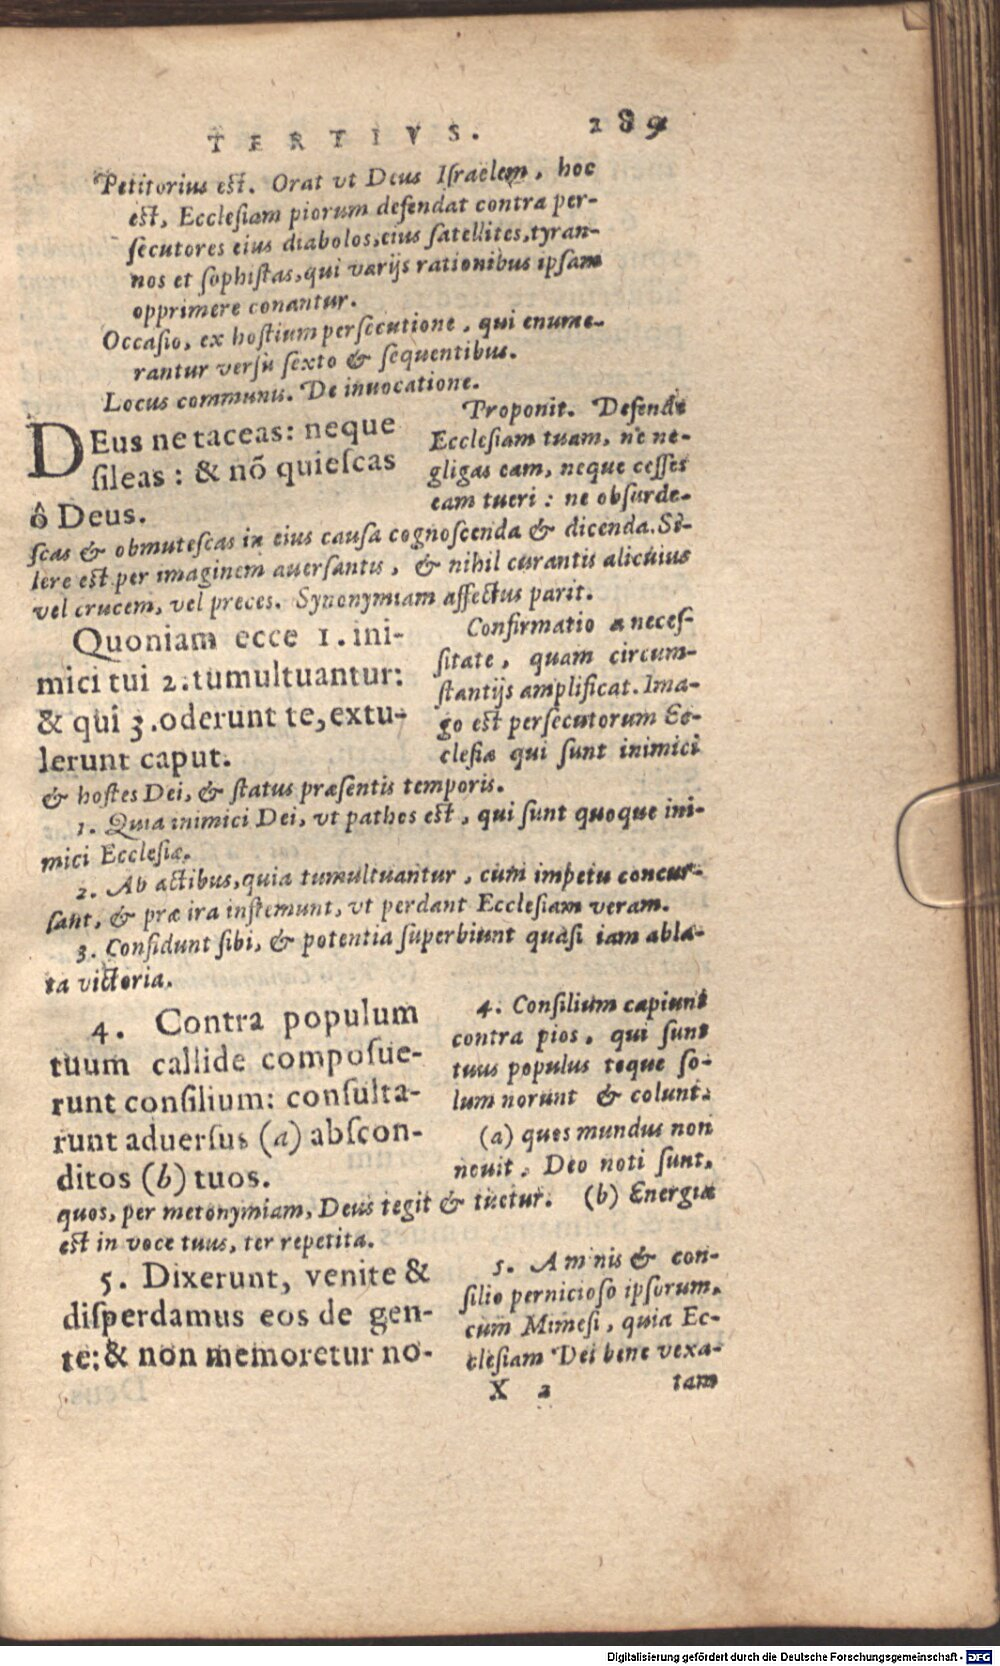 TERTIVS. 289
Petitorius est. Orat vt Deus Israelem, hoc
est, Ecclesiam piorum defendat contra per-
secutores eius diabolos, eius satellites, tyran-
nos et sophistas, qui varijs rationibus ipsam
opprimere conantur.
Occasio, ex hostium persecutione, qui enume-
rantur versu sexto & sequentibus.
Locus communis. De inuocatione.
DEus ne taceas: neque
sileas: & nõ quiescas
ô Deus.
Proponit. Defende
Ecclesiam tuam, ne ne-
gligas eam, neque cesses
eam tueri: ne obsurde-
scas & obmutescas in eius causa cognoscenda & dicenda. Si-
lere est per imaginem auersantis, & nihil curantis alicuius
vel crucem, vel preces. Synonymiam affectus parit.
Quoniam ecce 1. ini-
mici tui 2. tumultuantur:
& qui 3. oderunt te, extu-
lerunt caput.
Confirmatio a neces-
sitate, quam circum-
stantijs amplificat. Ima-
go est persecutorum Ec-
clesiæ qui sunt inimici
& hostes Dei, & status præsentis temporis.
1. Quia inimici Dei, vt pathos est, qui sunt quoque ini-
mici Ecclesiæ.
2. Ab actibus, quia tumultuantur, cum impetu concur-
sant, & præ ira instemunt, vt perdant Ecclesiam veram.
3. Considunt sibi, & potentia superbiunt quasi iam abla-
ta victoria.
4. Contra populum
tuum callide composue-
runt consilium: consulta-
runt aduersus (a) abscon-
ditos (b) tuos.
4. Consilium capiunt
contra pios, qui sunt
tuus populus teque so-
lum norunt & colunt.
(a) quos mundus non
nouit, Deo noti sunt,
quos, per metonymiam, Deus tegit & tuetur. (b) Energia
est in voce tuus, ter repetita.
5. Dixerunt, venite &
disperdamus eos de gen-
te: & non memoretur no-
5. Aminis & con-
silio pernicioso ipsorum,
cum Mimesi, quia Ec-
clesiam Dei bene vexa-
X 2 tam
Digitalisierung gefördert durch die Deutsche Forschungsgemeinschaft - DFG